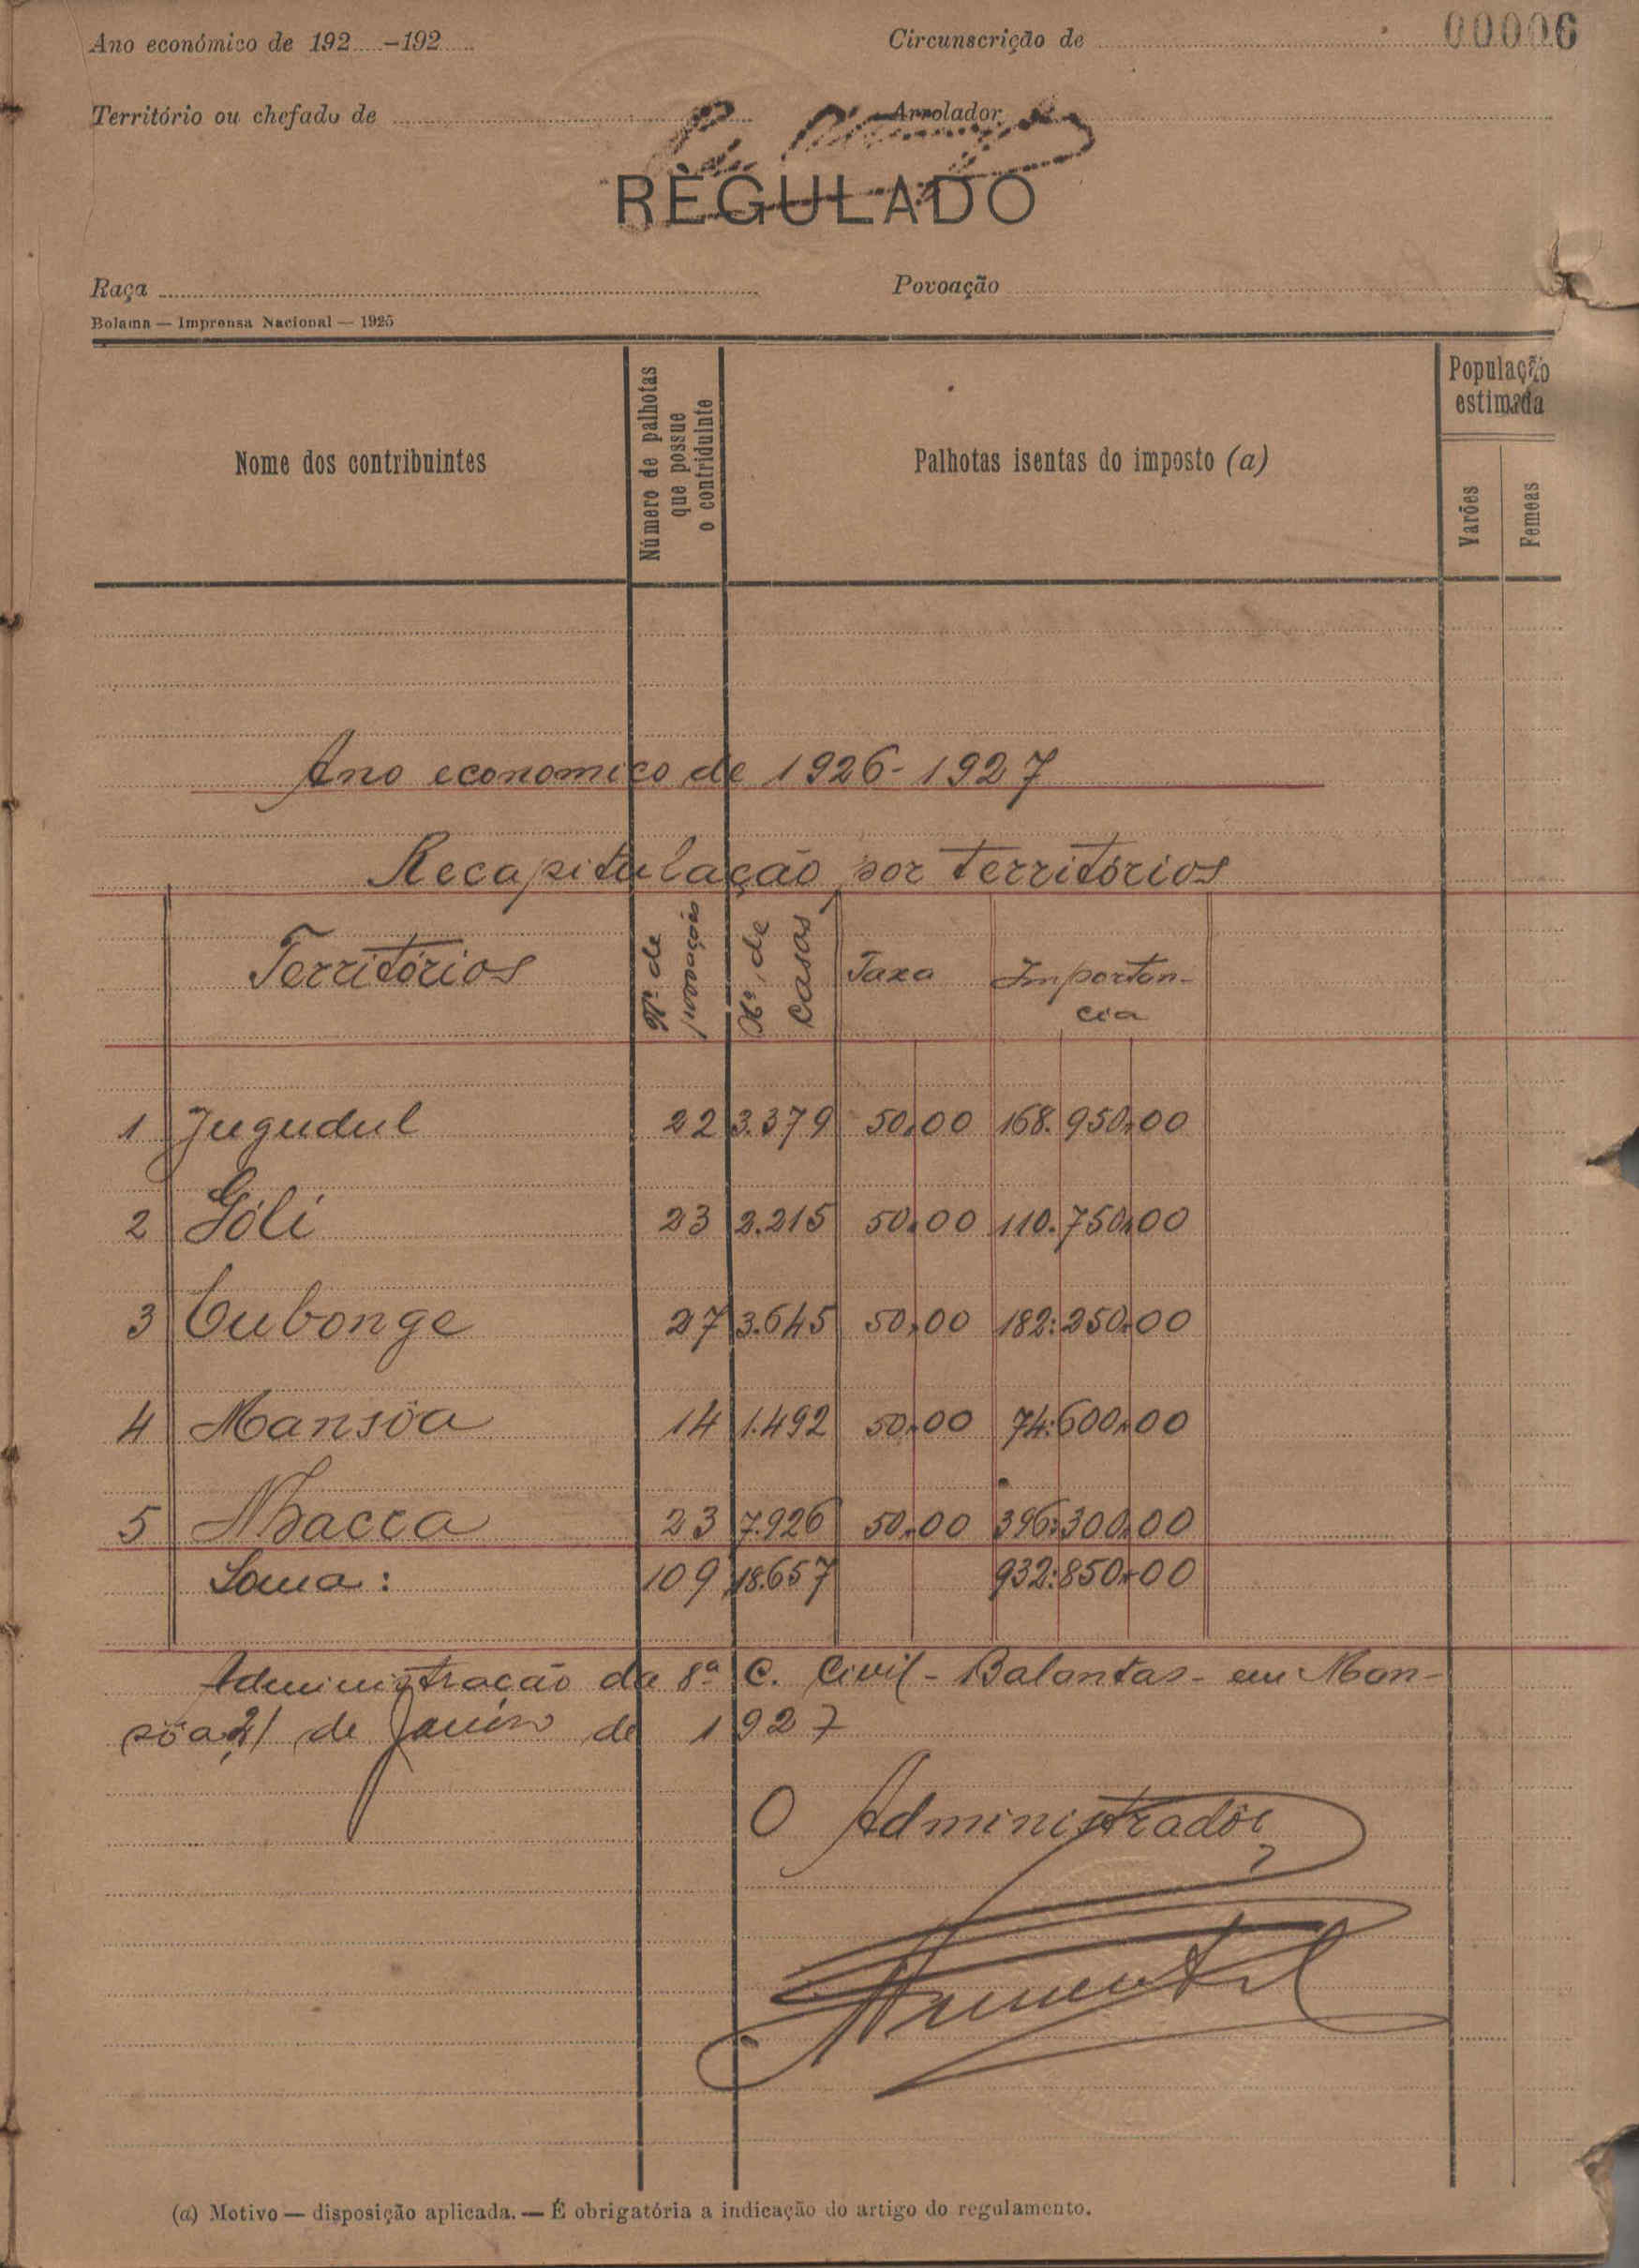 Ano económico de 192.....-192..... Circunscrição de 00006
Território ou chefado de Arrolador
REGULADO
Raça Povoação
Bolama — Imprensa Nacional — 1925
Nome dos contribuintes
Número de palhotas que possue o contriduinte
Palhotas isentas do imposto (a)
População estimada
Varões
Femeas
Ano economico de 1926-1927
Recapitulação por territórios
Territórios Nº. de povoações Nº. de Casas Taxa Importan-
cia
1 Jugudul 22 3.379 50,00 168.950,00
2 Góli 23 2.215 50,00 110.750,00
3 Cubonge 27 3.645 50,00 182:250,00
4 Mansôa 14 1.492 50,00 74:600,00
5 Nhacca 23 7.926 50,00 396:300,00
Soma: 109 18.657 932:850,00
Administração da 8ª C. Civil - Balantas - em Man-
sôa, 21 de Janeiro de 1927
O Administradôr,
(a) Motivo — disposição aplicada. — É obrigatória a indicação do artigo do regulamento.